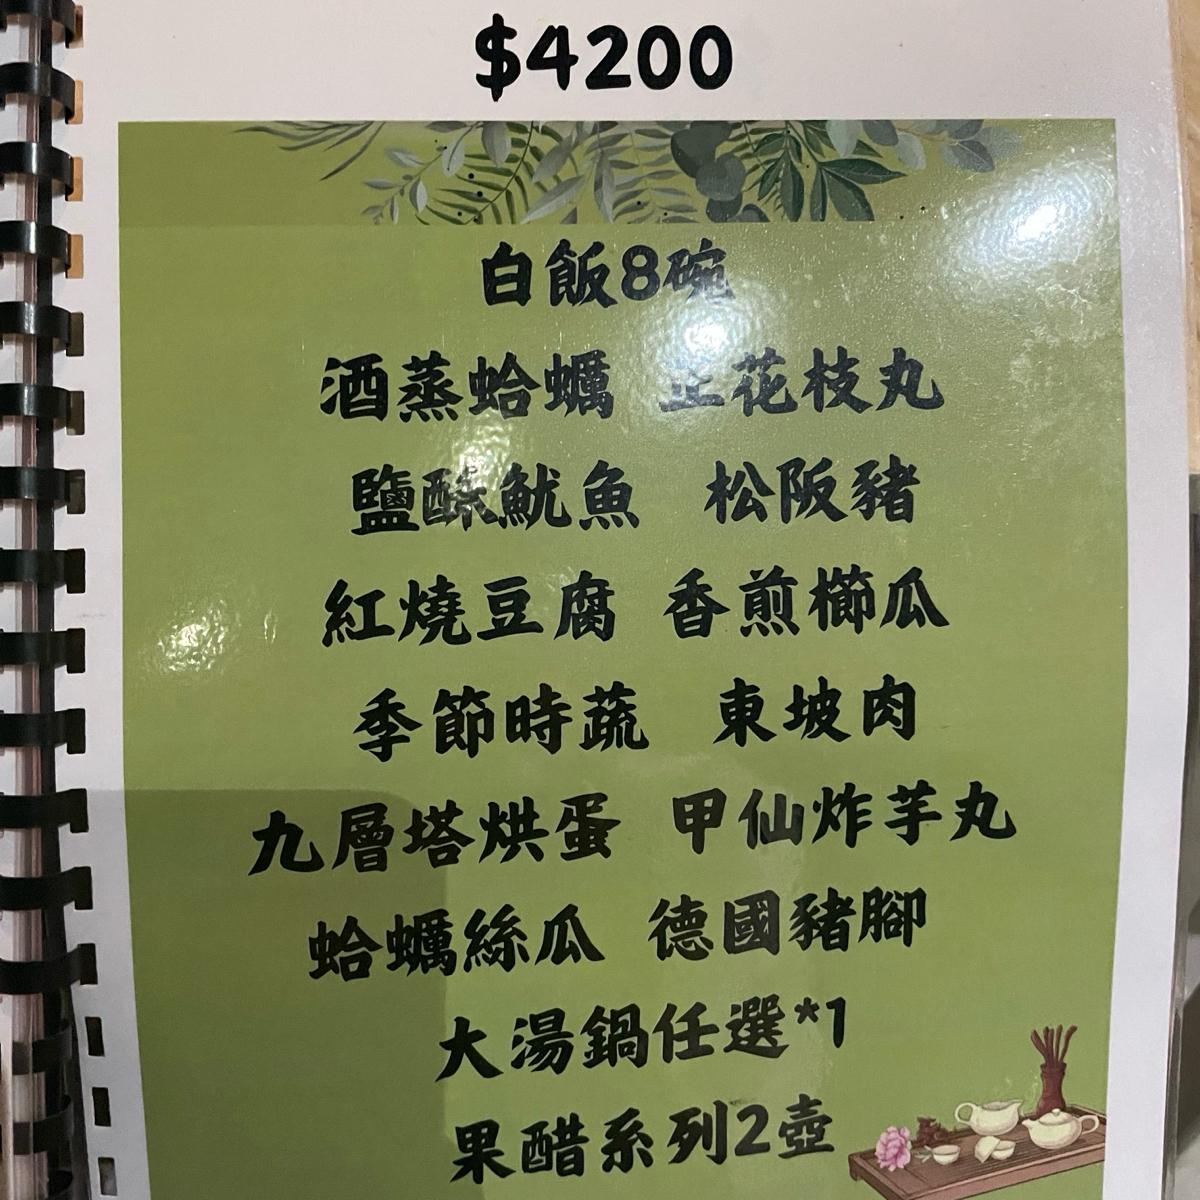 $4200
白飯8碗
酒蒸蛤蠣 正花枝丸
鹽酥魷魚 松阪豬
紅燒豆腐 香煎櫛瓜
季節時蔬 東坡肉
九層塔烘蛋 甲仙炸芋丸
蛤蠣絲瓜 德國豬腳
大湯鍋任選*1
果醋系列2壺